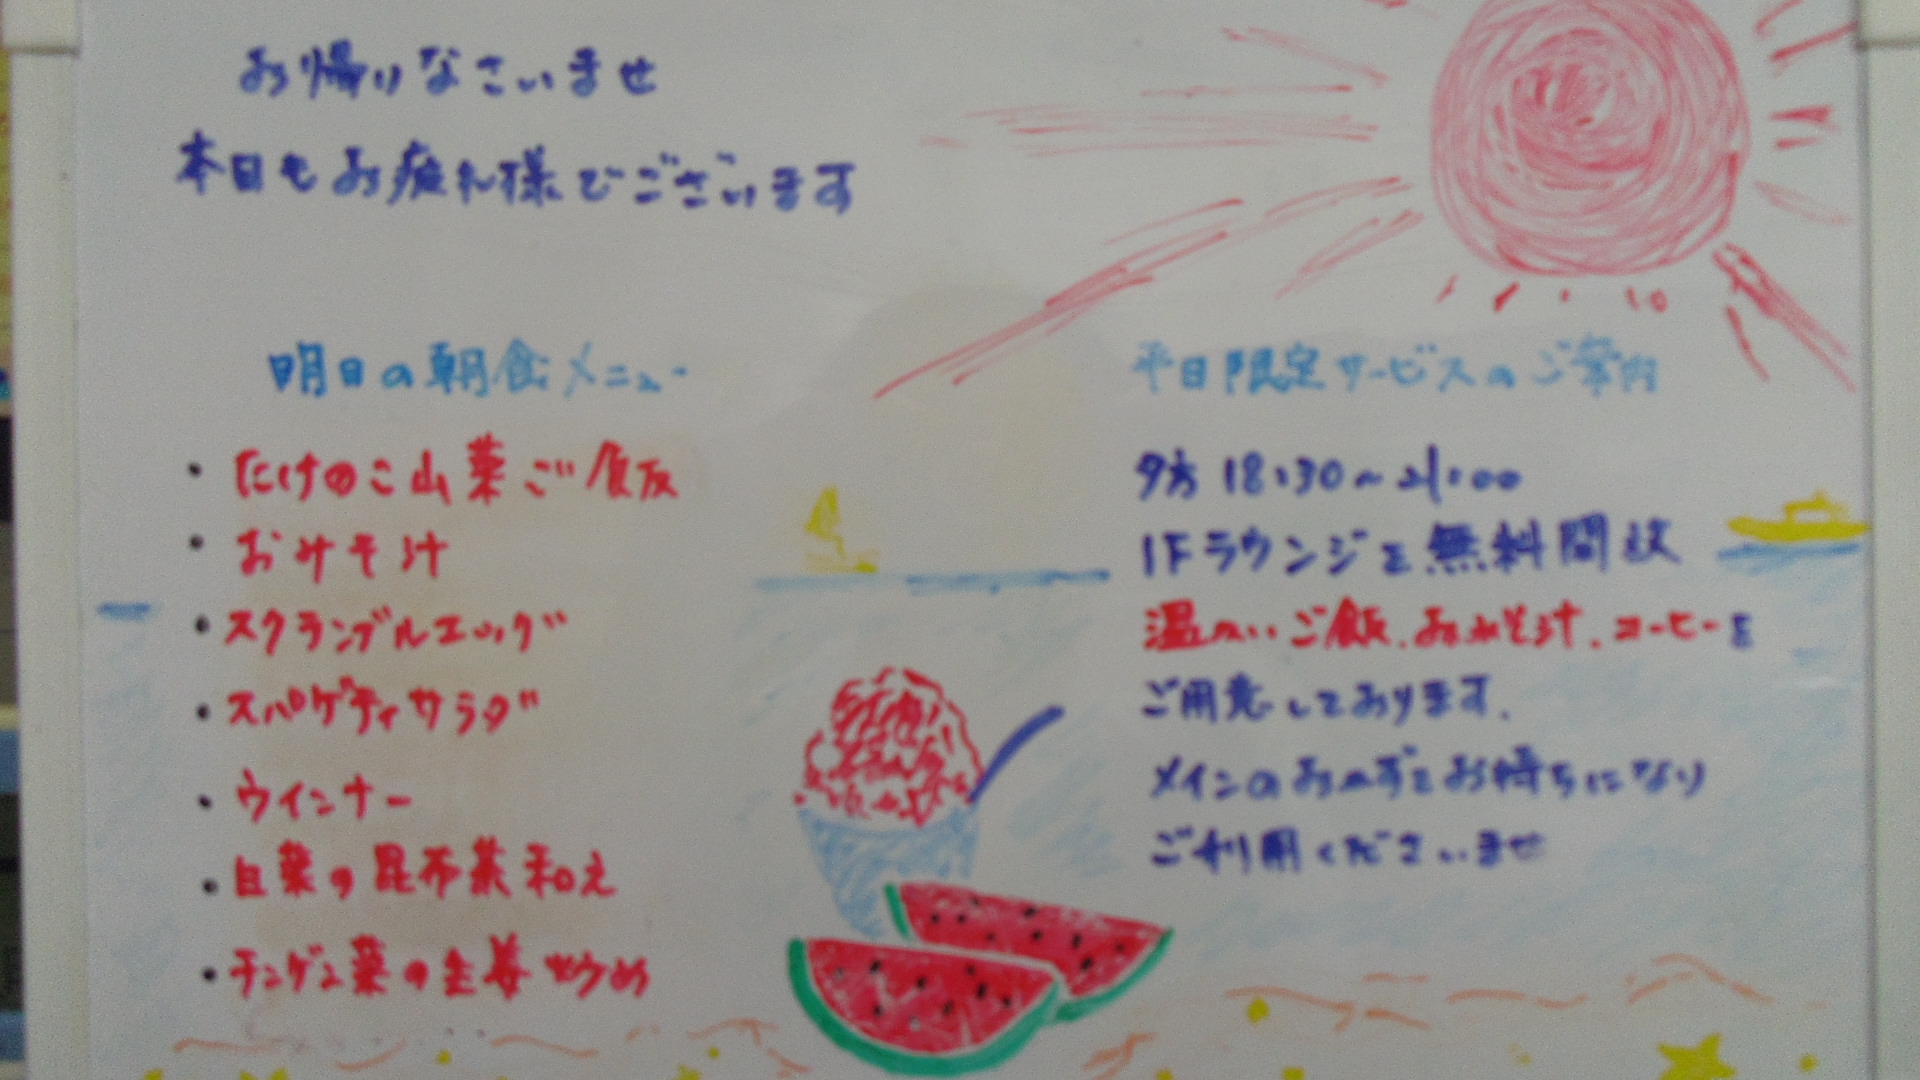 お帰りなさいませ
本日もお疲れ様でございます
明日の朝食メニュー
・たけのこ山菜ご飯
・おみそ汁
・スクランブルエッグ
・スパゲティサラダ
・ウインナー
・白菜の昆布茶和え
・チンゲン菜の生姜炒め
平日限定サービスのご案内
夕方 18:30〜21:00
1Fラウンジを無料開放
温かいご飯、おみそ汁、コーヒーを
ご用意しております。
メインのおかずをお持ちになり
ご利用くださいませ